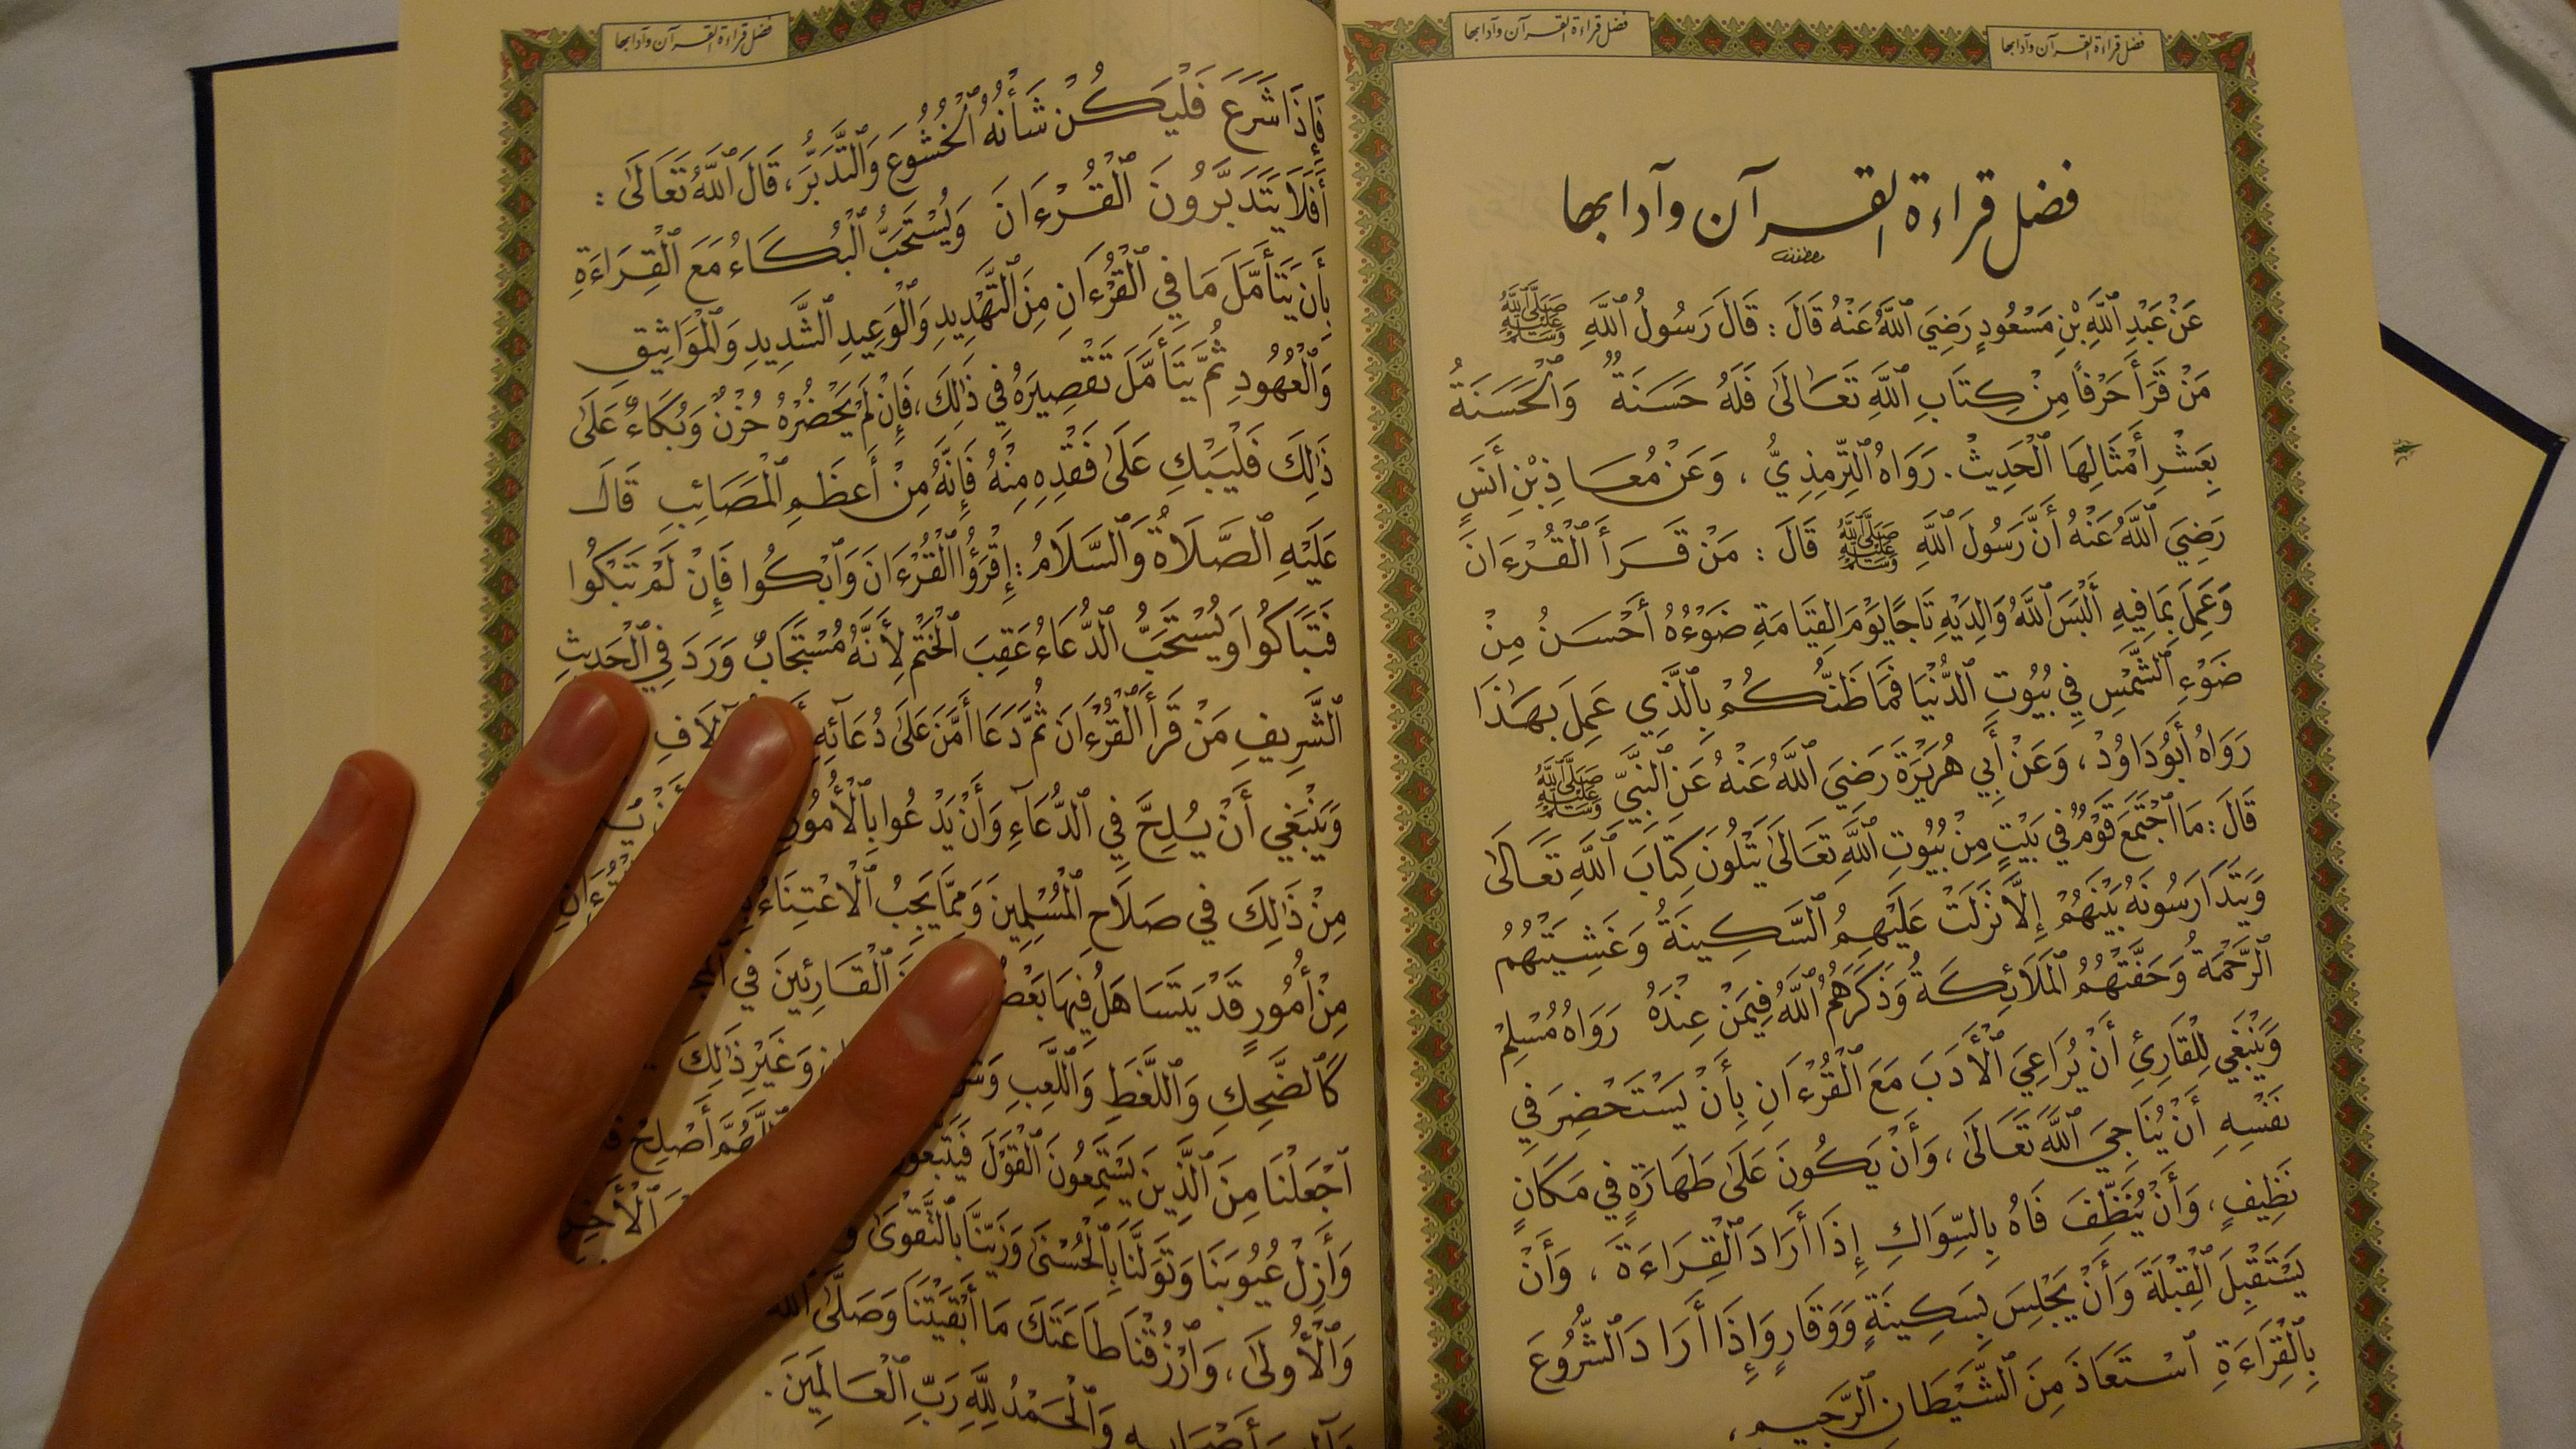 فضل قراءة القرآن وآدابها
فضل قراءة القرآن وآدابها
فضل قراءة القرآن وآدابها
عَنْ عَبْدِ ٱللَّهِ بْنِ مَسْعُودٍ رَضِيَ ٱللَّهُ عَنْهُ قَالَ : قَالَ رَسُولُ ٱللَّهِ ﷺ
مَنْ قَرَأَ حَرْفاً مِنْ كِتَابِ ٱللَّهِ تَعَالَىٰ فَلَهُ حَسَنَةٌ وَٱلْحَسَنَةُ
بِعَشْرِ أَمْثَالِهَا ٱلْحَدِيثْ . رَوَاهُ ٱلتِّرْمِذِيُّ ، وَعَنْ مُعَاذِ بْنِ أَنَسٍ
رَضِيَ ٱللَّهُ عَنْهُ أَنَّ رَسُولَ ٱللَّهِ ﷺ قَالَ : مَنْ قَرَأَ ٱلْقُرْءَانَ
وَعَمِلَ بِمَا فِيهِ أَلْبَسَ ٱللَّهُ وَالِدَيْهِ تَاجًا يَوْمَ ٱلْقِيَامَةِ ضَوْءُهُ أَحْسَنُ مِنْ
ضَوْءِ ٱلشَّمْسِ فِي بُيُوتِ ٱلدُّنْيَا فَمَا ظَنُّكُمْ بِٱلَّذِي عَمِلَ بِهَٰذَا
رَوَاهُ أَبُو دَاوُدْ ، وَعَنْ أَبِي هُرَيْرَةَ رَضِيَ ٱللَّهُ عَنْهُ عَنِ ٱلنَّبِيِّ ﷺ
قَالَ : مَا ٱجْتَمَعَ قَوْمٌ فِي بَيْتٍ مِنْ بُيُوتِ ٱللَّهِ تَعَالَىٰ يَتْلُونَ كِتَابَ ٱللَّهِ تَعَالَىٰ
وَيَتَدَارَسُونَهُ بَيْنَهُمْ إِلَّا نَزَلَتْ عَلَيْهِمُ ٱلسَّكِينَةُ وَغَشِيَتْهُمُ
ٱلرَّحْمَةُ وَحَفَّتْهُمُ ٱلْمَلَائِكَةُ وَذَكَرَهُمُ ٱللَّهُ فِيمَنْ عِنْدَهُ رَوَاهُ مُسْلِمْ
وَيَنْبَغِي لِلْقَارِئِ أَنْ يُرَاعِيَ ٱلْأَدَبَ مَعَ ٱلْقُرْءَانِ بِأَنْ يَسْتَحْضِرَ فِي
نَفْسِهِ أَنْ يُنَاجِيَ ٱللَّهَ تَعَالَىٰ ، وَأَنْ يَكُونَ عَلَىٰ طَهَارَةٍ فِي مَكَانٍ
نَظِيفٍ ، وَأَنْ يُنَظِّفَ فَاهُ بِالسِّوَاكِ إِذَا أَرَادَ ٱلْقِرَاءَةَ ، وَأَنْ
يَسْتَقْبِلَ ٱلْقِبْلَةَ وَأَنْ يَجْلِسَ بِسَكِينَةٍ وَوَقَارٍ وَإِذَا أَرَادَ ٱلشُّرُوعَ
بِٱلْقِرَاءَةِ ٱسْتَعَاذَ مِنَ ٱلشَّيْطَانِ ٱلرَّجِيمِ ،
فضل قراءة القرآن وآدابها
فَإِذَا شَرَعَ فَلْيَكُنْ شَأْنُهُ ٱلْخُشُوعَ وَٱلتَّدَبُّرَ ، قَالَ ٱللَّهُ تَعَالَىٰ :
أَفَلَا يَتَدَبَّرُونَ ٱلْقُرْءَانَ وَيُسْتَحَبُّ ٱلْبُكَاءُ مَعَ ٱلْقِرَاءَةِ
بِأَنْ يَتَأَمَّلَ مَا فِي ٱلْقُرْءَانِ مِنَ ٱلتَّهْدِيدِ وَٱلْوَعِيدِ ٱلشَّدِيدِ وَٱلْمَوَاثِيقِ
وَٱلْعُهُودِ ثُمَّ يَتَأَمَّلَ تَقْصِيرَهُ فِي ذَٰلِكَ ، فَإِنْ لَمْ يَحْضُرْهُ حُزْنٌ وَبُكَاءٌ عَلَىٰ
ذَٰلِكَ فَلْيَبْكِ عَلَىٰ فَقْدِهِ مِنْهُ فَإِنَّهُ مِنْ أَعْظَمِ ٱلْمَصَائِبِ قَالَ
عَلَيْهِ ٱلصَّلَاةُ وَٱلسَّلَامُ : إِقْرَؤُا ٱلْقُرْءَانَ وَٱبْكُوا فَإِنْ لَمْ تَبْكُوا
فَتَبَاكُوا وَيُسْتَحَبُّ ٱلدُّعَاءُ عَقِبَ ٱلْخَتْمِ لِأَنَّهُ مُسْتَجَابٌ وَرَدَ فِي ٱلْحَدِيثِ
ٱلشَّرِيفِ مَنْ قَرَأَ ٱلْقُرْءَانَ ثُمَّ دَعَا أَمَّنَ عَلَىٰ دُعَائِهِ
وَيَنْبَغِي أَنْ يُلِحَّ فِي ٱلدُّعَآءِ وَأَنْ يَدْعُوا بِٱلْأُمُورِ
مِنْ ذَٰلِكَ فِي صَلَاحِ ٱلْمُسْلِمِينَ وَمِمَّا يَجِبُ ٱلِٱعْتِنَاءُ
مِنْ أُمُورٍ قَدْ يَتَسَاهَلُ فِيهَا ٱلْقَارِئِينَ فِي
كَٱلضَّحِكِ وَٱللَّغَطِ وَٱللَّعِبِ وَغَيْرِ ذَٰلِكَ ..
ٱجْعَلْنَا مِنَ ٱلَّذِينَ يَسْتَمِعُونَ ٱلْقَوْلَ أَصْلِحْ
وَأَزِلْ عُيُوبَنَا وَتَوَلَّنَا بِٱلْحُسْنَىٰ وَزَيِّنَّا بِٱلتَّقْوَىٰ
وَٱلْأُولَىٰ ، وَٱرْزُقْنَا طَاعَتَكَ مَا أَبْقَيْتَنَا وَصَلَّىٰ ٱللَّهُ
وَٱلْحَمْدُ لِلَّهِ رَبِّ ٱلْعَالَمِينَ .